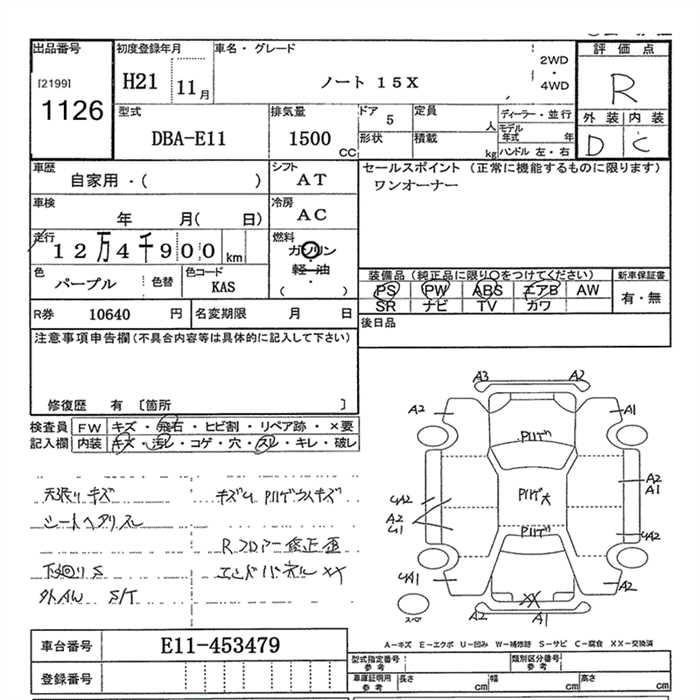 出品番号
[2199]
1126
初度登録年月
H21 11月
車名・グレード
ノート 15X
2WD
・
4WD
評価点
R
外装 内装
D C
型式
DBA-E11
排気量
1500
CC
ドア
5
定員
人
形状
積載
kg
ディーラー・並行
モデル年式
年
ハンドル 左・右
車歴
自家用・( )
シフト
AT
セールスポイント (正常に機能するものに限ります)
ワンオーナー
車検
年 月( 日)
冷房
AC
走行
12万4千900 km
燃料
ガソリン
・
軽・油
・
( )
色
パープル
色替
色コード
KAS
装備品(純正品に限り○をつけてください)
新車保証書
PS PW ABS エアB AW
有・無
SR ナビ TV カワ
R券 10640 円
名変期限 月 日
後日品
注意事項申告欄(不具合内容等は具体的に記入して下さい)
修復歴 有 [箇所 ]
検査員
記入欄
FW キズ・飛石・ヒビ割・リペア跡・×要
内装 キズ・汚レ・コゲ・穴・スレ・キレ・破レ
天張りキズ
シートヘタリスレ
下廻りS
外AW S/T
Rフロアー修正歪
エンドパネルXX
A3 A2
A2 A1
A2
A1
UA2
A2
U1
UA2
UA1
A2
A2 A1
XX
スペア
A-キズ E-エクボ U-凹み W-補修跡 S-サビ C-腐食 XX-交換済
車台番号
E11-453479
登録番号
型式指定番号
参考
類別区分番号
参考
車庫証明用
参考
長さ cm
幅 cm
高さ cm